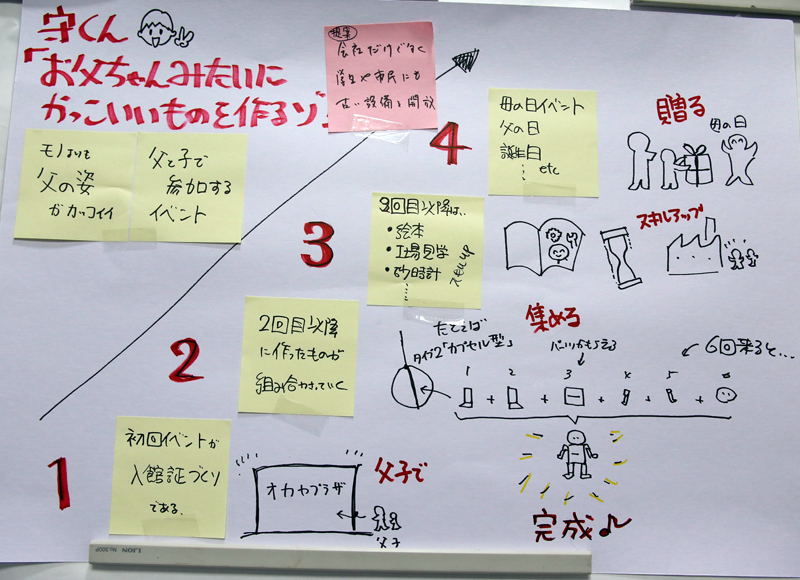 守くん
「お父ちゃんみたいに
かっこいいものを作るゾ」
提案
会社だけでなく
学生や市民にも
古い設備を開放
モノよりも
父の姿
がカッコイイ
父と子で
参加する
イベント
4
母の日イベント
父の日
誕生日
… etc
贈る
母の日
3
3回目以降は、
・絵本
・工場見学
・砂時計
……
スキルUP
スキルアップ
2
2回目以降
に作ったものが
組み合わさっていく
集める
たとえば
タイプ2「カプセル型」
パーツがもらえる
6回来ると…
1 2 3 4 5 6
+ + + + +
完成♪
1
初回イベントが
入館証づくり
である.
オカヤプラザ
父子で
父子
LION No.300P